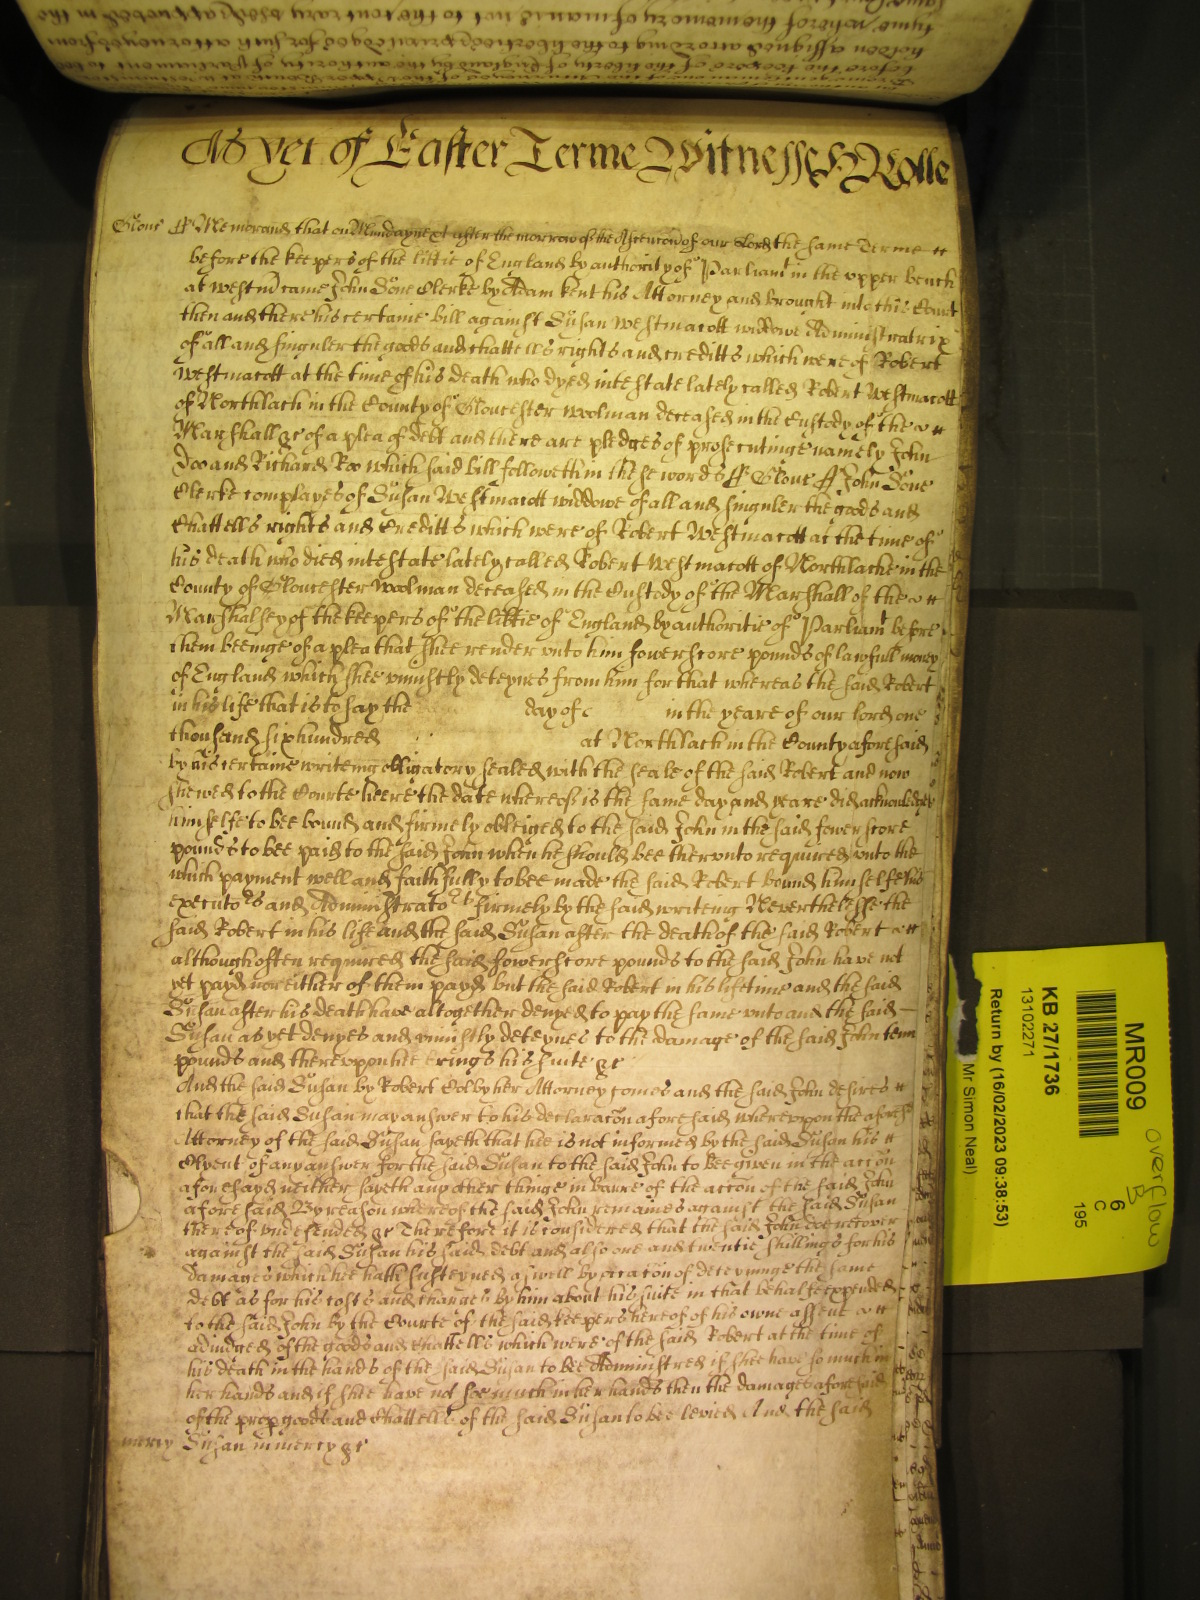 As yet of Easter Terme Witnesse H Rolle
Glouc ss Memorand that on Munday next after the morrow of the Ascencon of our Lord the same Terme
before the keepers of the libtie of England by authority of Parliamt in the upper bench
at Westm came John Done Clerke by Adam Kent his Attorney and brought into this Court
then and there his certaine bill against Susan Westmacott widdowe Administratrix
of all and singuler the goods and chattells rights and creditts which were of Robert
Westmacott at the time of his death who dyed intestate lately called Robert Westmacott
of Northlach in the County of Gloucester woolman deceased in the Custody of the
Marshall &c of a plea of debt and there are pledges of prosecutinge namely John
Doo and Richard Roo which said bill followeth in these words ss Glouc ss John Done
Clerke complaynes of Susan Westmacott widdowe of all and singuler the goods and
Chattells rights and Creditts which were of Robert Westmacott at the time of
his death who died intestate lately called Robert Westmacott of Northlache in the
County of Gloucester woolman deceased in the Custody of the Marshall of the
Marshalsey of the keepers of the libtie of England by authoritie of Parliamt before
them beeinge of a plea that shee render unto him fowerscore pounds of lawfull money
of England which shee uniustly deteynes from him for that whereas the said Robert
in his life that is to say the day of in the yeare of our lord one
thousand six hundred at Northlach in the County aforesaid
by his certaine writeing obligatory sealed with the seale of the said Robert and now
shewed to the Courte heere the date whereof is the same day and yeare did acknowledge
himselfe to bee bound and firmely obleiged to the said John in the said fowerscore
pounds to bee paid to the said John when he should bee therunto required unto the
which payment well and faithfully to bee made the said Robert bound himselfe his
executors and Administrators firmely by the said writeing Neverthelesse the
said Robert in his life and the said Susan after the death of the said Robert
although often required the said fowerscore pounds to the said John have not
yet payd nor either of them payd but the said Robert in his lifetime and the said
Susan after his death have altogether denyed to pay the same unto and the said
Susan as yet denyes and uniustly deteynes to the damage of the said John tenn
pounds and thereuppon hee brings his suite &c
And the said Susan by Robert Colby her Attorney comes and the said John desires
that the said Susan may answer to his declaracon aforesaid whereuppon the aforesd
Attorney of the said Susan sayeth that hee is not informed by the said Susan his
Clyent of any answer for the said Susan to the said John to bee given in the accon
aforesayd neither sayeth any other thinge in barre of the accon of the said John
aforesaid By reason whereof the said John remaines against the said Susan
thereof undefended &c Therefore it is considered that the said John doe recover
against the said Susan his said debt and also one and twentie shillings for his
damages which hee hath susteyned aswell by occacon of deteyninge the same
debt as for his costs and charges by him about his suite in that behalfe expended
to the said John by the Courte of the said keepers hereof of his owne assent
adiudged of the goods and Chattells which were of the said Robert at the time of
his death in the hands of the said Susan to bee Administred if shee have so much in
her hands and if shee have not soe much in her hands then the damages aforesaid
of the prop goods and Chattells of the said Susan to bee levied And the said
mercy Susan in mercy &c
MR009
KB 27/1736
13102271
Return by (16/02/2023 09:38:53)
Mr Simon Neal)
6
C
195
Overflow
B